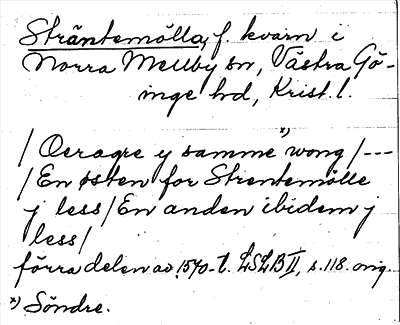 Sträntemölla, f. kvarn i
Norra Mellby sn, Västra Gö-
inge hd, Krist. l.
/ Oeragre y samme *) wong / ---
/ En østen for Strentemølle
j less / En anden ibidem j
less /
förra delen av 1570-t. LSLB II, s. 118. orig.
*) Söndre.